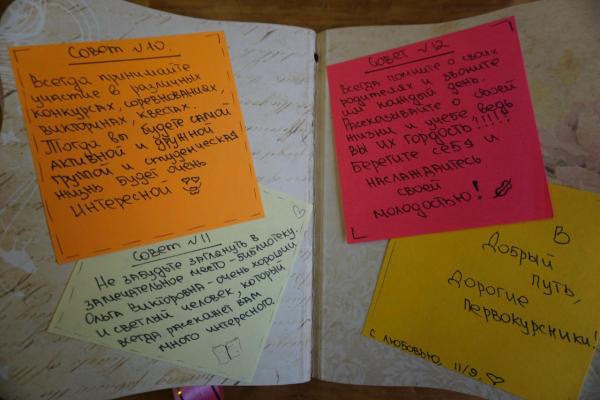 Совет №10.
Всегда принимайте
участие в различных
конкурсах, соревнованиях,
викторинах, квестах.
Тогда вы будете самой
активной и дружной
группой и студенческая
жизнь будет очень
интересной
Совет №11
Не забудьте заглянуть в
замечательное место - библиотеку.
Ольга Викторовна - очень хороший
и светлый человек, который
всегда расскажет вам
много интересного
Совет №12
Всегда помните о своих
родителях и звоните
им каждый день.
Рассказывайте о своей
жизни и учебе ведь
вы их гордость!!!!!
Берегите себя и
наслаждайтесь
своей
молодостью!
В
Добрый
путь,
Дорогие
первокурсники!
С любовью, 11/9.